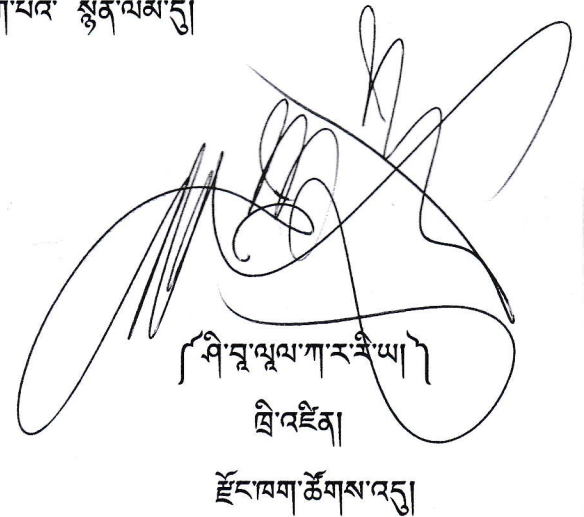 སྙན་ལམ་དུ།
༼ཤི་བཱ་ལཱལ་ཀ་ར་རི་ཡ།༽
ཁྲི་འཛིན།
རྫོང་ཁག་ཚོགས་འདུ།